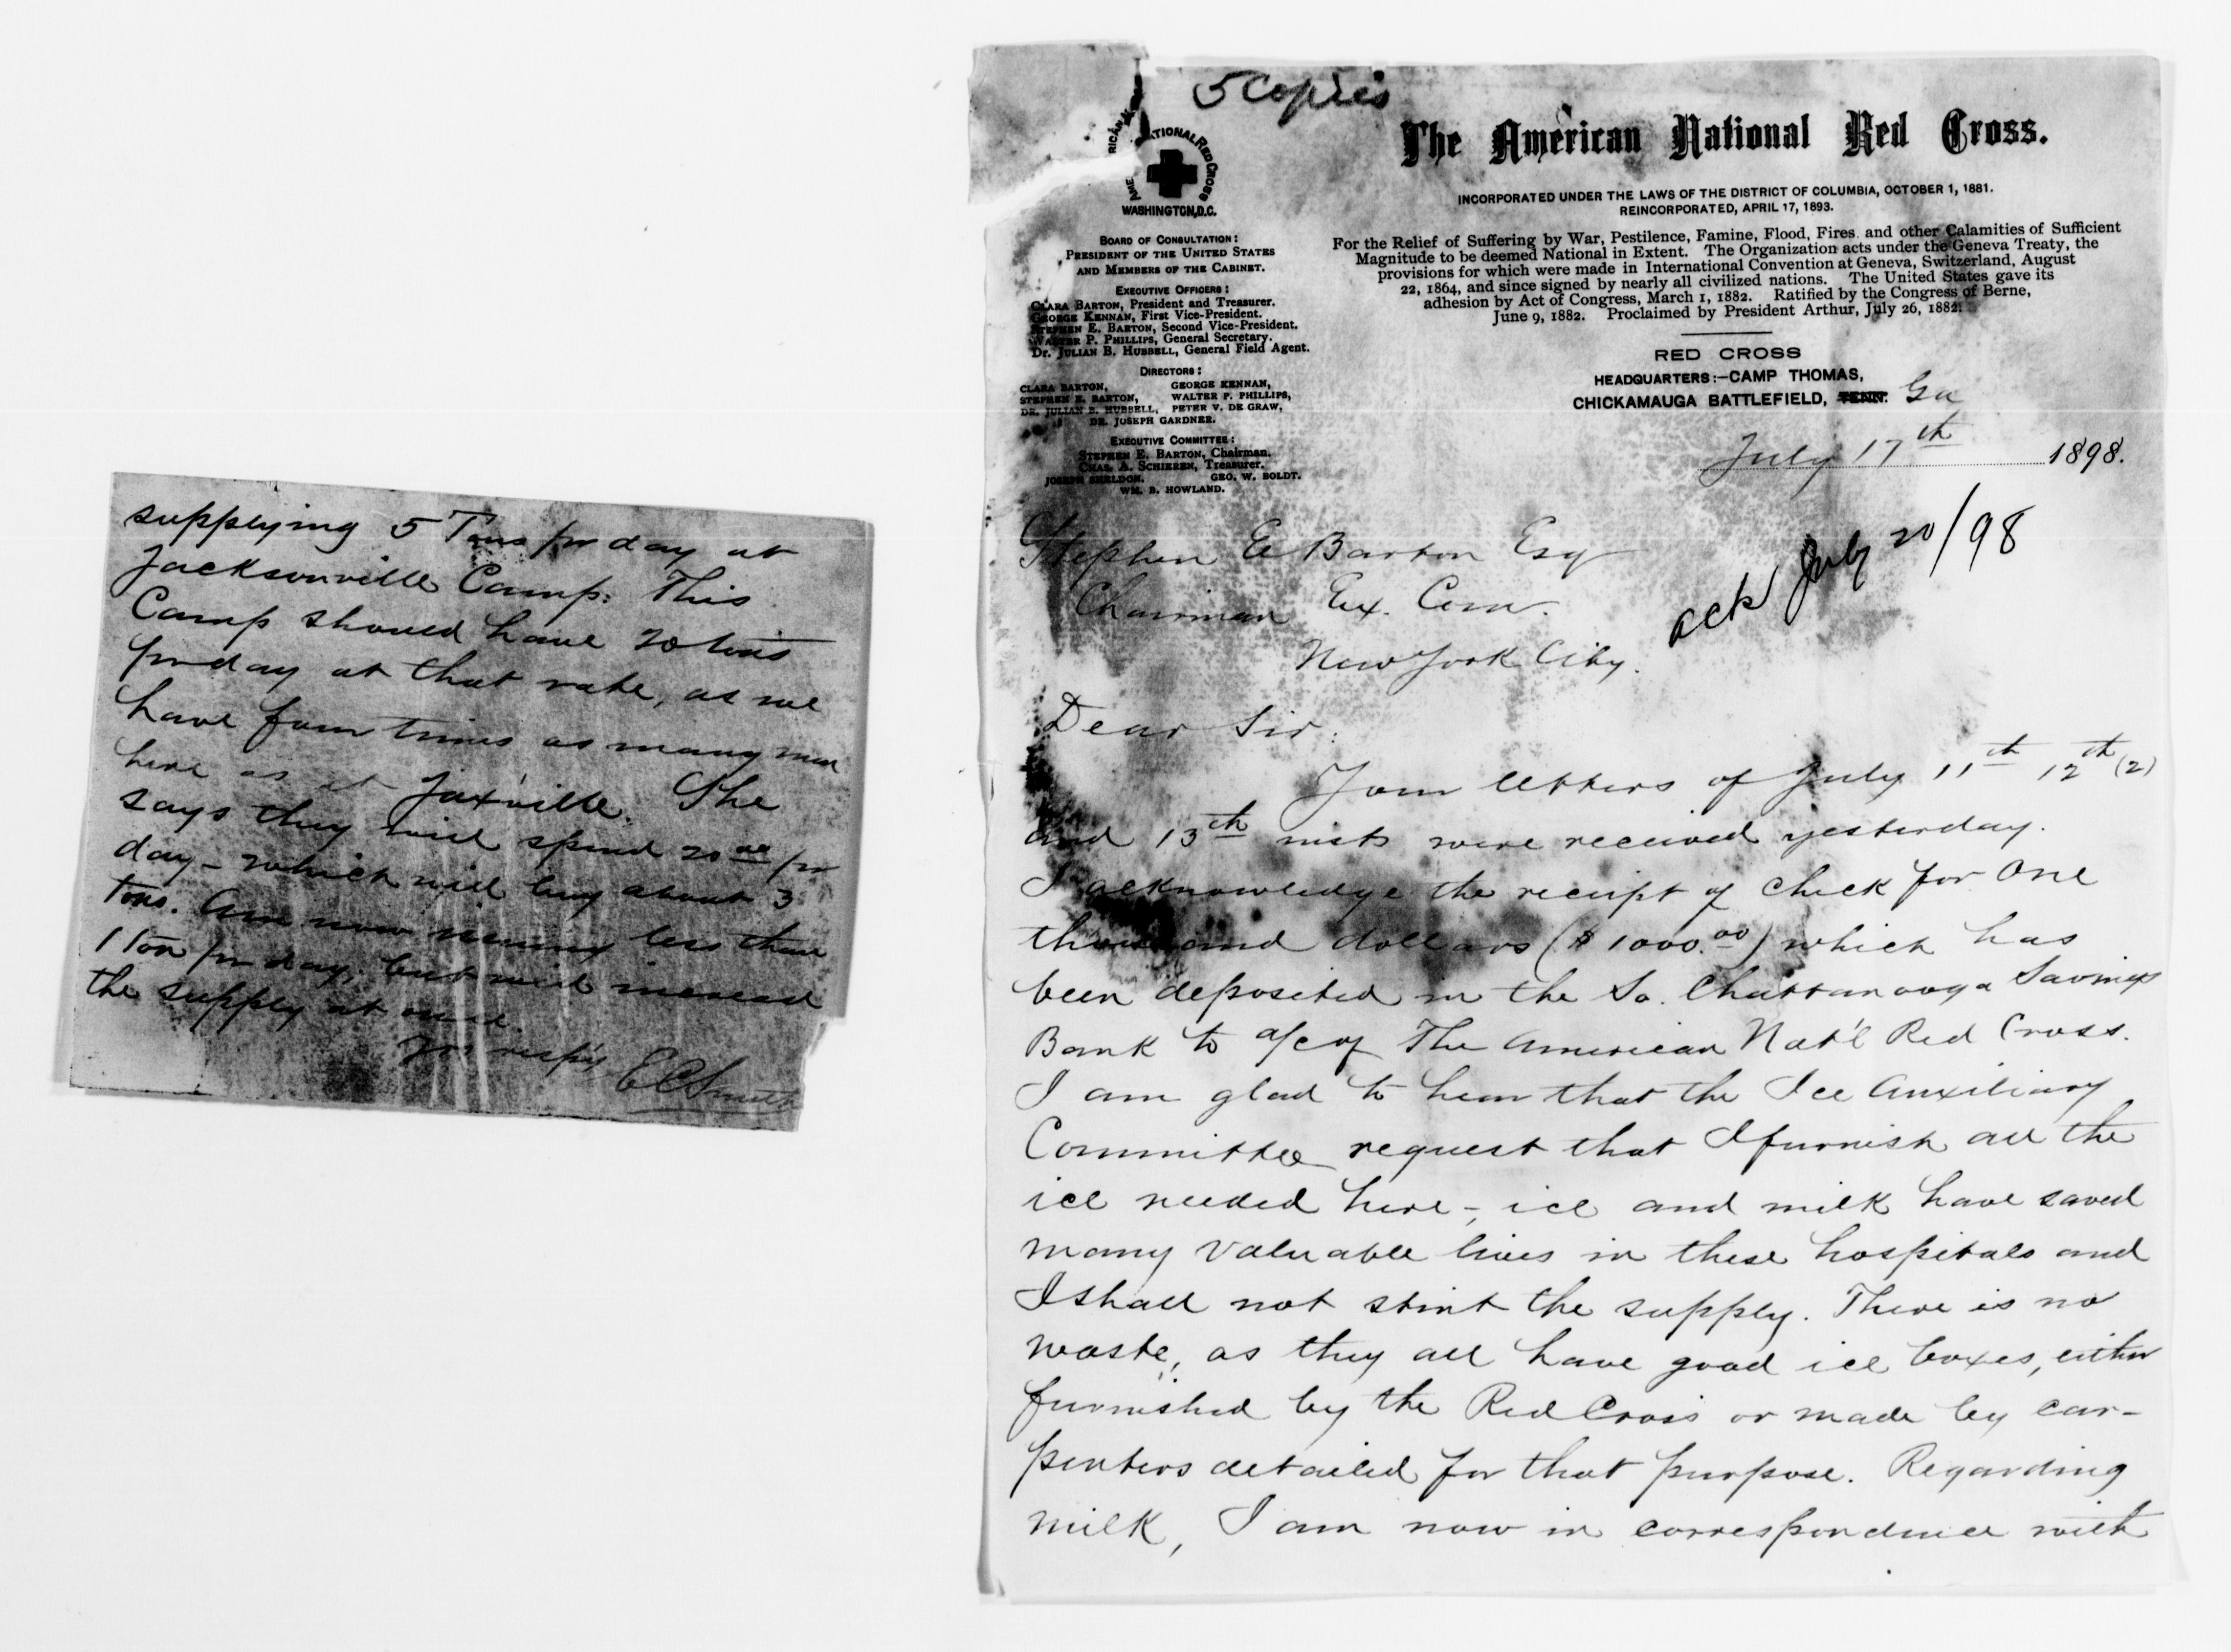 supplying 5 Tons pr day at
Jacksonville Camp. This
Camp should have 20 tons
pr day at that rate, as we
have four times as many men
here as at Jax'ville. She
says they will spend 20 00 pr
day - which will buy about 3
tons. Am now using less than
1 ton pr day, but will increase
the supply at once.
Yrs resp'y E C Smith
5 Copies
AMERICAN NATIONAL RED CROSS
WASHINGTON, D.C.
The American National Red Cross.
INCORPORATED UNDER THE LAWS OF THE DISTRICT OF COLUMBIA, OCTOBER 1, 1881.
REINCORPORATED, APRIL 17, 1893.
For the Relief of Suffering by War, Pestilence, Famine, Flood, Fires and other Calamities of Sufficient
Magnitude to be deemed National in Extent. The Organization acts under the Geneva Treaty, the
provisions for which were made in International Convention at Geneva, Switzerland, August
22, 1864, and since signed by nearly all civilized nations. The United States gave its
adhesion by Act of Congress, March 1, 1882. Ratified by the Congress of Berne,
June 9, 1882. Proclaimed by President Arthur, July 26, 1882.
BOARD OF CONSULTATION:
PRESIDENT OF THE UNITED STATES
AND MEMBERS OF THE CABINET.
EXECUTIVE OFFICERS:
CLARA BARTON, President and Treasurer.
GEORGE KENNAN, First Vice-President.
STEPHEN E. BARTON, Second Vice-President.
WALTER P. PHILLIPS, General Secretary.
Dr. JULIAN B. HUBBELL, General Field Agent.
DIRECTORS:
CLARA BARTON, GEORGE KENNAN,
STEPHEN E. BARTON, WALTER P. PHILLIPS,
DR. JULIAN B. HUBBELL, PETER V. DE GRAW,
DR. JOSEPH GARDNER.
EXECUTIVE COMMITTEE:
STEPHEN E. BARTON, Chairman.
CHAS. A. SCHIEREN, Treasurer.
JOSEPH SHELDON. GEO. W. BOLDT.
WM. B. HOWLAND.
RED CROSS
HEADQUARTERS:-CAMP THOMAS,
CHICKAMAUGA BATTLEFIELD, TENN. Ga
July 17th 1898.
ack July 20/98
Stephen E Barton Esq
Chairman Ex. Com.
New York City.
Dear Sir:
Your letters of July 11th 12th (2)
and 13th inst were received yesterday.
I acknowledge the receipt of check for One
thousand dollars ($1000.00) which has
been deposited in the So. Chattanooga Savings
Bank to a/c of The American Nat'l Red Cross.
I am glad to hear that the Ice Auxiliary
Committee request that I furnish all the
ice needed here -, ice and milk have saved
many valuable lives in these hospitals and
I shall not stint the supply. There is no
waste, as they all have good ice boxes, either
furnished by the Red Cross or made by car-
penters detailed for that purpose. Regarding
milk, I am now in correspondence with